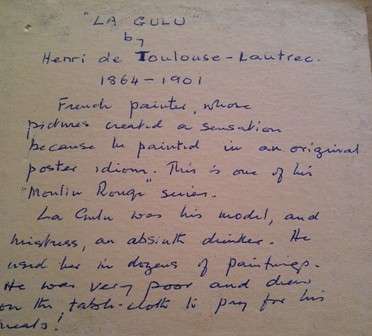 "LA GULU"
by
Henri de Toulouse-Lautrec.
1864-1901
French painter, whose
pictures created a sensation
because he painted in an original
poster idiom. This is one of his
"Moulin Rouge" series.
La Gulu was his model, and
mistress, an absinth drinker. He
used her in dozens of paintings.
He was very poor and drew
on the table-cloth to pay for his
meals!